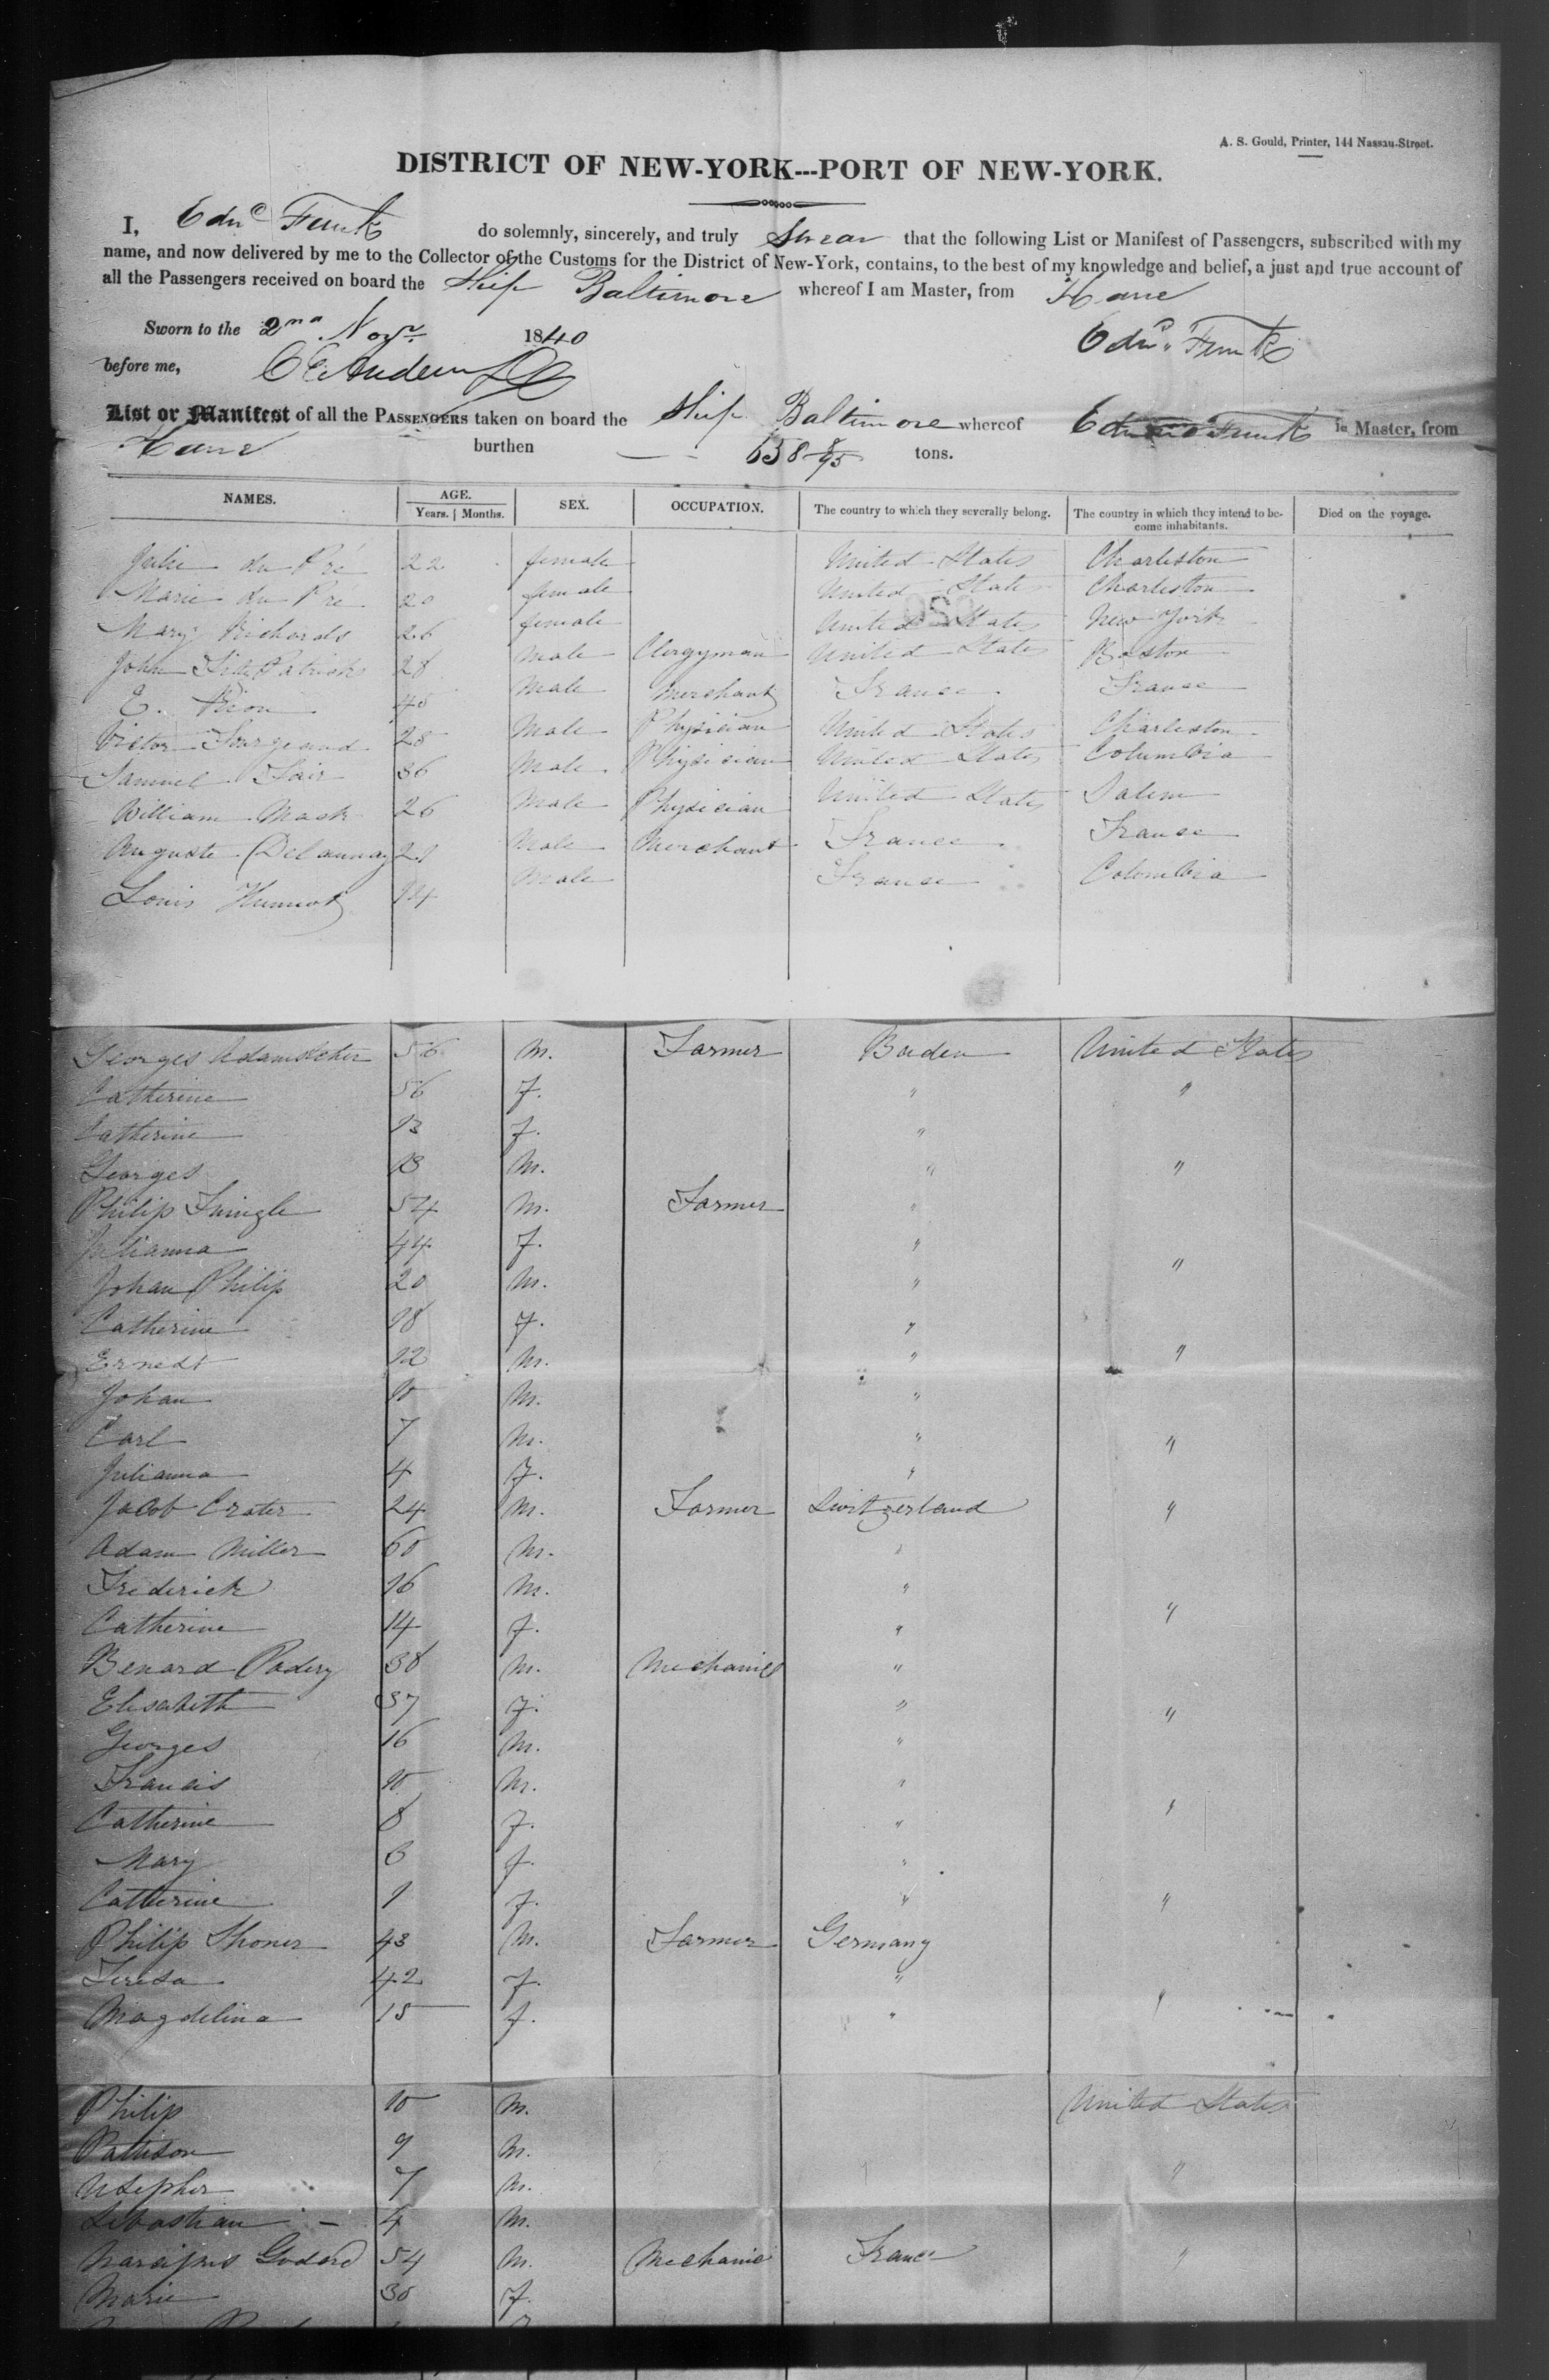 A. S. Gould, Printer, 144 Nassau-Street.
DISTRICT OF NEW-YORK---PORT OF NEW-YORK.
I, Edwd Funk do solemnly, sincerely, and truly Swear that the following List or Manifest of Passengers, subscribed with my
name, and now delivered by me to the Collector of the Customs for the District of New-York, contains, to the best of my knowledge and belief, a just and true account of
all the Passengers received on board the Ship Baltimore whereof I am Master, from Havre
Sworn to the 2nd Novr 1840 Edwd Funk
before me,
List or Manifest of all the PASSENGERS taken on board the Ship Baltimore whereof Edward Funk is Master, from
Havre burthen 658 tons.
NAMES. AGE. Years. Months. SEX. OCCUPATION. The country to which they severally belong. The country in which they intend to become inhabitants. Died on the voyage.
Julie du Pré 22 female United States Charleston
Marie du Pré 20 female United States Charleston
Mary Richards 26 female United States New York
John FitzPatrick 28 Male Clergyman United States Boston
E. 40 Male Merchant France France
Victor 28 Male Physician United States Charleston
Samuel Fair 36 Male Physician United States Columbia
William Mack 26 Male Physician United States Salem
Auguste Delaunay 21 Male Merchant France France
Louis 14 Male France Colombia
Georges 56 M. Farmer Baden United States
Catherine 56 f. " "
Catherine 13 f. "
Georges 18 M. " "
Philip 54 M. Farmer "
Julianna 44 f. "
Johan Philip 20 M. " "
Catherine 18 f. "
Ernest 12 M. " "
Johan 10 M. "
Carl 7 M. " "
Julianna 4 f. "
Jacob Crater 24 M. Farmer Switzerland "
Adam Miller 60 M. "
Frederick 16 M. "
Catherine 14 f. " "
Benard 38 M. Mechanic "
Elisabeth 37 f. " "
Georges 16 M. "
Francis 10 M. "
Catherine 8 f. " "
Mary 6 f. "
Catherine 1 f. " "
Philip Shoner 43 M. Farmer Germany
Teresa 42 f. "
Magdelina 15 f. " "
Philip 10 M. United States
9 M.
7 M. "
Sebastian 4 M.
Godard 54 M. Mechanic France "
Marie 30 f.